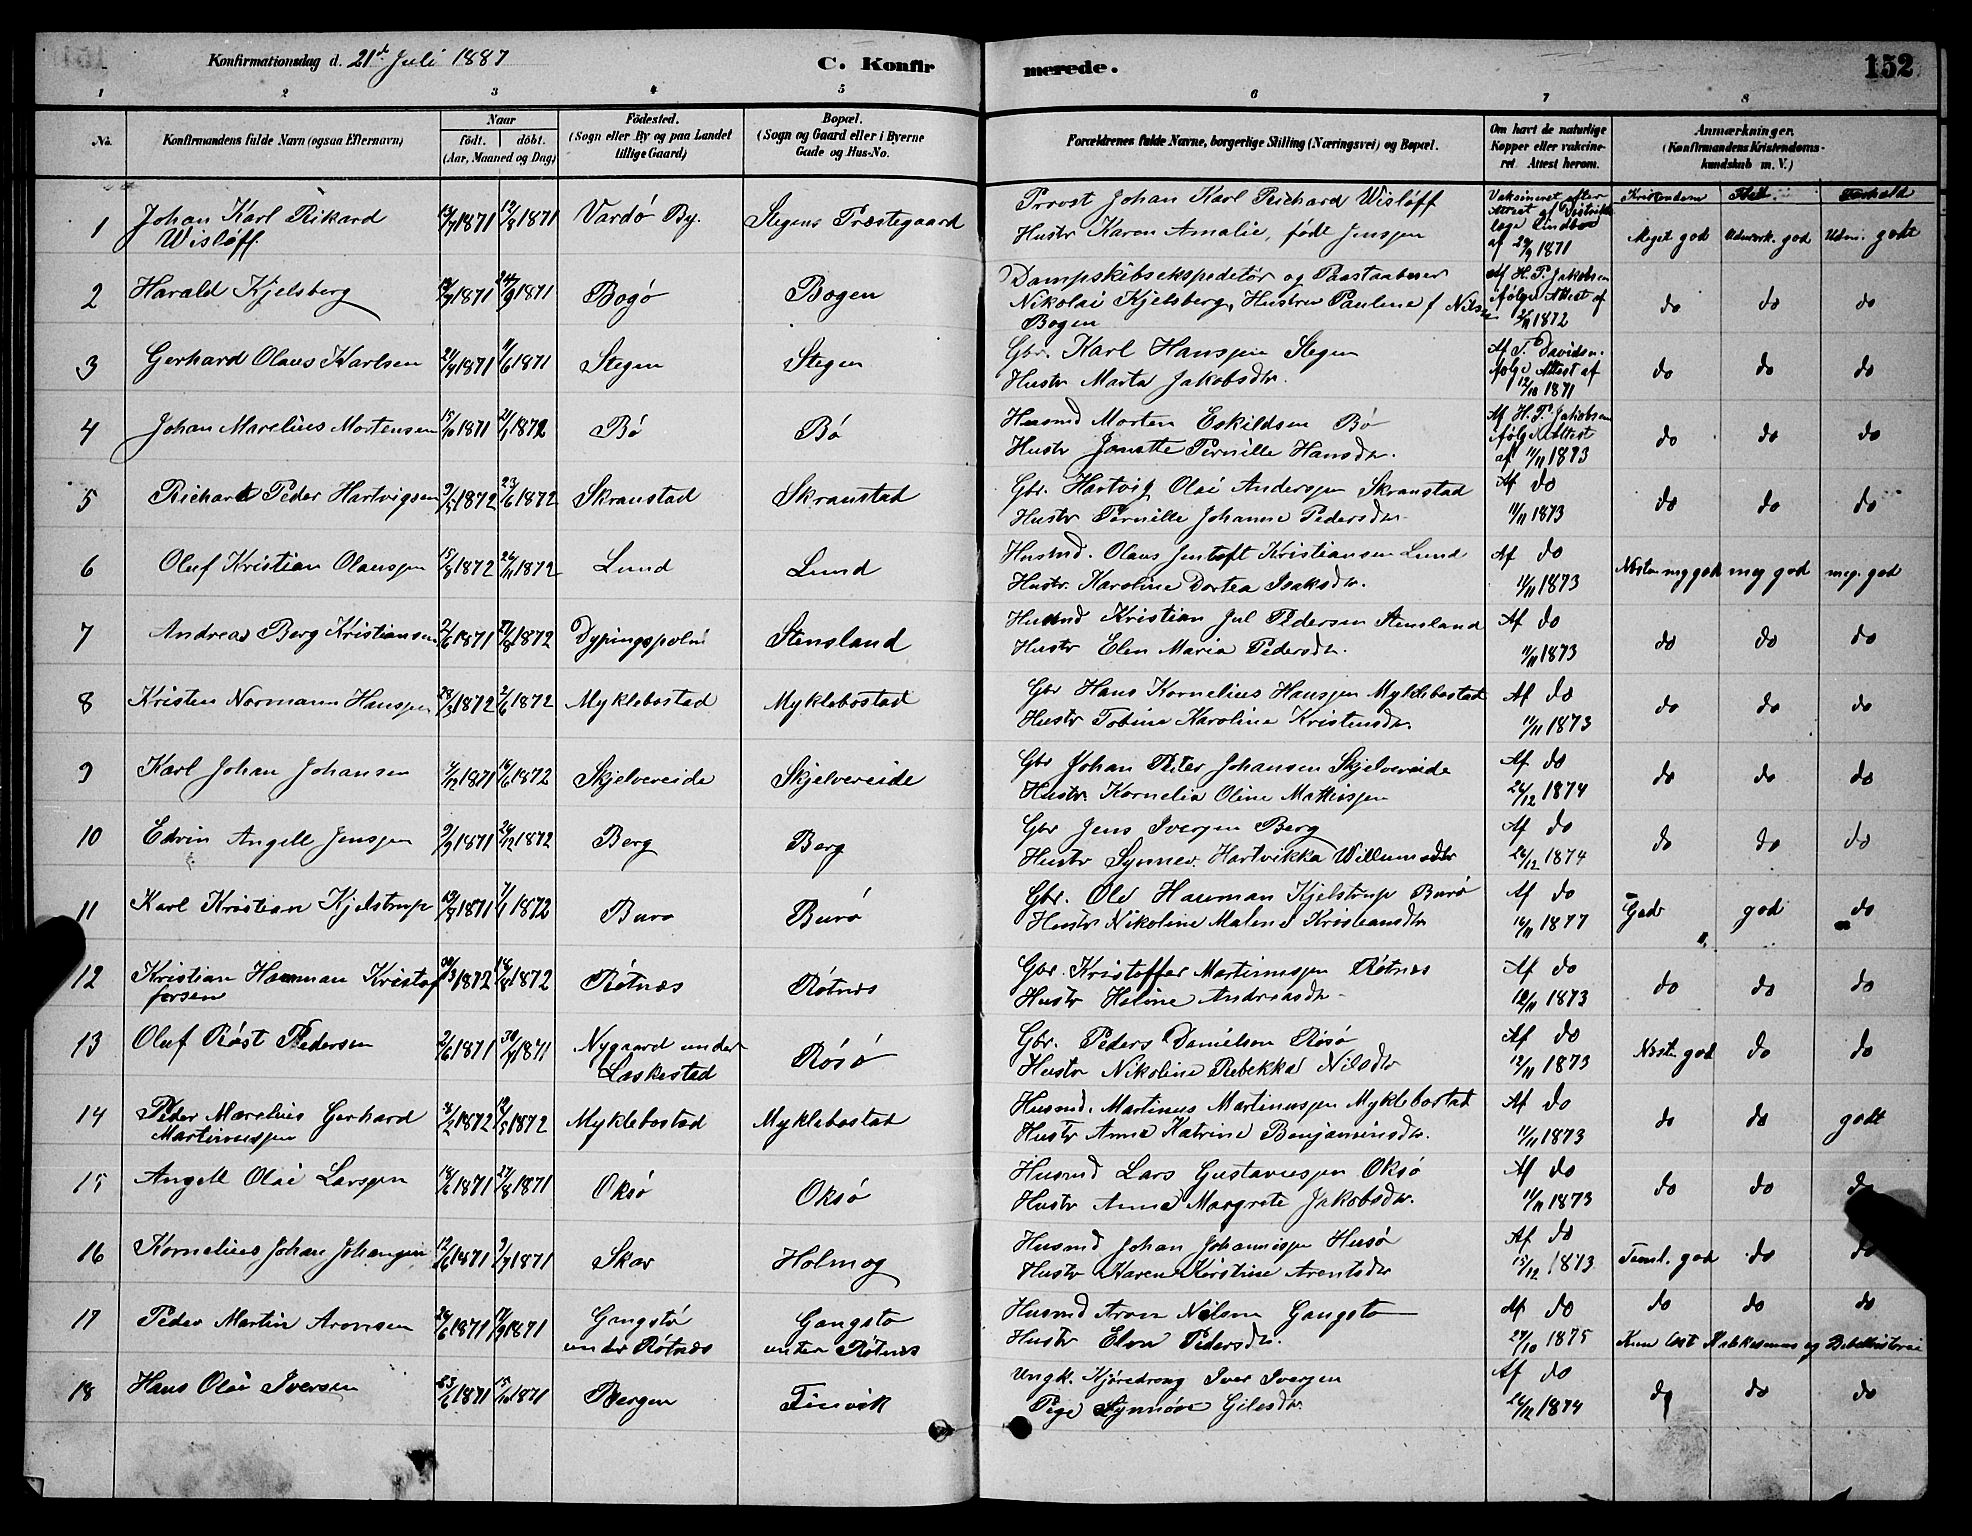 Konfirmationsdag d. 21d Juli 1887
C. Konfirmerede.
152
1 2 3 4 5 6 7 8
No.
Konfirmandens fulde Navn (ogsaa Efternavn)
Naar
födt. döbt.
(Aar, Maaned og Dag)
Födested.
(Sogn eller By og paa Landet tillige Gaard)
Bopæl.
(Sogn og Gaard eller i Byerne Gade og Hus-No.
Forældrenes fulde Navne, borgerlige Stilling (Næringsvei) og Bopæl.
Om havt de naturlige Kopper eller vakcineret. Attest herom.
Anmærkninger.
(Konfirmandens Kristendomskundskab m. V.)
Kristendom Flid Forhold
1 Johan Karl Rikard Wisløff 1871 1871 Vardø By. Stegens Præstegaard
Provst Johan Karl Richard Wisløff
Hustr Karen Amalie, født Jenssen
Vaksineret efter Attest af Distriktslæge Lindboe af 29/9 1871
Meget god Udmerk. god Udm. godt
2 Harald Kjelsberg 1871 1871 Bogø Bogen
Dampskibsekspeditør og Paastaaboer
Nikolai Kjelsberg, Hustru Pauline f Nilsen
Bogen
Af H. P. Jakobsen ifølge Attest af 1872
do do do
3 Gerhard Olaus Karlsen 1871 1871 Stegen Stegen
Gbr. Karl Hanssen Stegen
Hustr Marta Jakobsdtr.
Af T. Davidsn. følge Attest af 12/10 1871
do do do
4 Johan Marelius Mortensen 1871 2/1 1872 Bø Bø
Husmd Morten Eskildsen Bø
Hustr Janette Pernille Hansdtr.
Af H. P. Jakobsen ifølge Attest af 11/11 1873
do do do
5 Richard Peder Hartvigsen 1872 23/6 1872 Skranstad Skranstad
Gbr. Hartvig Olai Anderssen Skranstad
Hustr Pernille Johanna Pedersdtr
Af do
11/11 1873
do do do
6 Oluf Kristian Olaussen 15/3 1872 1872 Lund Lund
Husmd. Olaus Jentoft Kristiansen Lund
Hustr. Karoline Dortea Isaksdtr.
Af do
11/11 1873
Næsten meg god meg god meg. god
7 Andreas Berg Kristiansen 1871 1872 Stensland
Husmd Kristian Jul Pedersen Stensland
Hustr Elen Maria Pedersdtr.
Af do
11/11 1873
do do do
8 Kristen Normann Hanssen 28/3 1872 2/6 1872 Myklebostad Myklebostad
Gbr Hans Kornelius Hanssen Myklebostad
Hustr Tobine Karoline Kristensdtr.
Af do
11/11 1873
do do do
9 Karl Johan Johansen 1871 16/6 1872 Skjelvereide Skjelvereide
Gbr Johan Peter Johansen Skjelvereide
Hustr. Kornelia Oline Mathissen
Af do
26/12 1874
do do do
10 Edvin Angell Jenssen 9/9 1871 1872 Berg Berg
Gbr Jens Iversen Berg
Hustr Synnev. Hartvikka Willumsdtr
Af do
26/12 1874
do do do
11 Karl Kristian Kjelstrup 1871 7/1 1872 Burø Burø
Gbr. Ole Hauman Kjelstrup Burø
Hustr Nikoline Malene Kristiansdtr
Af do
16/11 1877
God god do
12 Kristian Hauman Kristoffersen 1872 1872 Røtnæs Røtnæs
Gbr. Kristoffer Martinussen Røtnæs
Hustr Heline Andreasdtr
Af do
12/11 1873
do do do
13 Oluf Røst Pedersen 2/6 1871 30/7 1871 Nygaard under Laskestad Røsø
Gbr. Peders Danielsen Røsø
Hustr Nikoline Rebekka Nilsdtr
Af do
12/11 1873
Næsten god do do
14 Peder Marelius Gerhard Martinussen 1872 1872 Myklebostad Myklebostad
Husmd. Martinus Martinussen Myklebostad
Hustr Anna Katrine Benjaminsdtr.
Af do
11/11 1873
do do godt
15 Angell Olai Larssen 18/6 1871 27/8 1871 Oksø Oksø
Husmd Lars Gustavussen Oksø
Hustr Anna Margrete Jakobsdtr.
Af do
11/11 1873
do do do
16 Kornelius Johan Johansen 12/6 1871 9/7 1871 Skar Holmog
Husmd Johan Johannissen Husø
Hustr Karen Kirstine Arentsdtr
Af do
15/12 1873
Teml. god do do
17 Peder Martin Aronsen 26/6 1871 17/9 1871 Gangstø under Røtnæs Gangstø under Røtnæs
Husmd Aron Nilsen Gangstø
Hustr Elen Pedersdtr.
Af do
27/10 1875
do do do
Kun læst Katekismus og Bibelhistorie
18 Hans Olai Iversen 23/6 1871 15/10 1871 Bergen Finvik
Ungk. Kjøredreng Iver Iversen
Pige Synnøve Gilesdtr.
Af do
26/12 1874
do do do